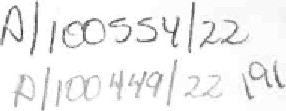 A/100554/22
A/100449/22 191